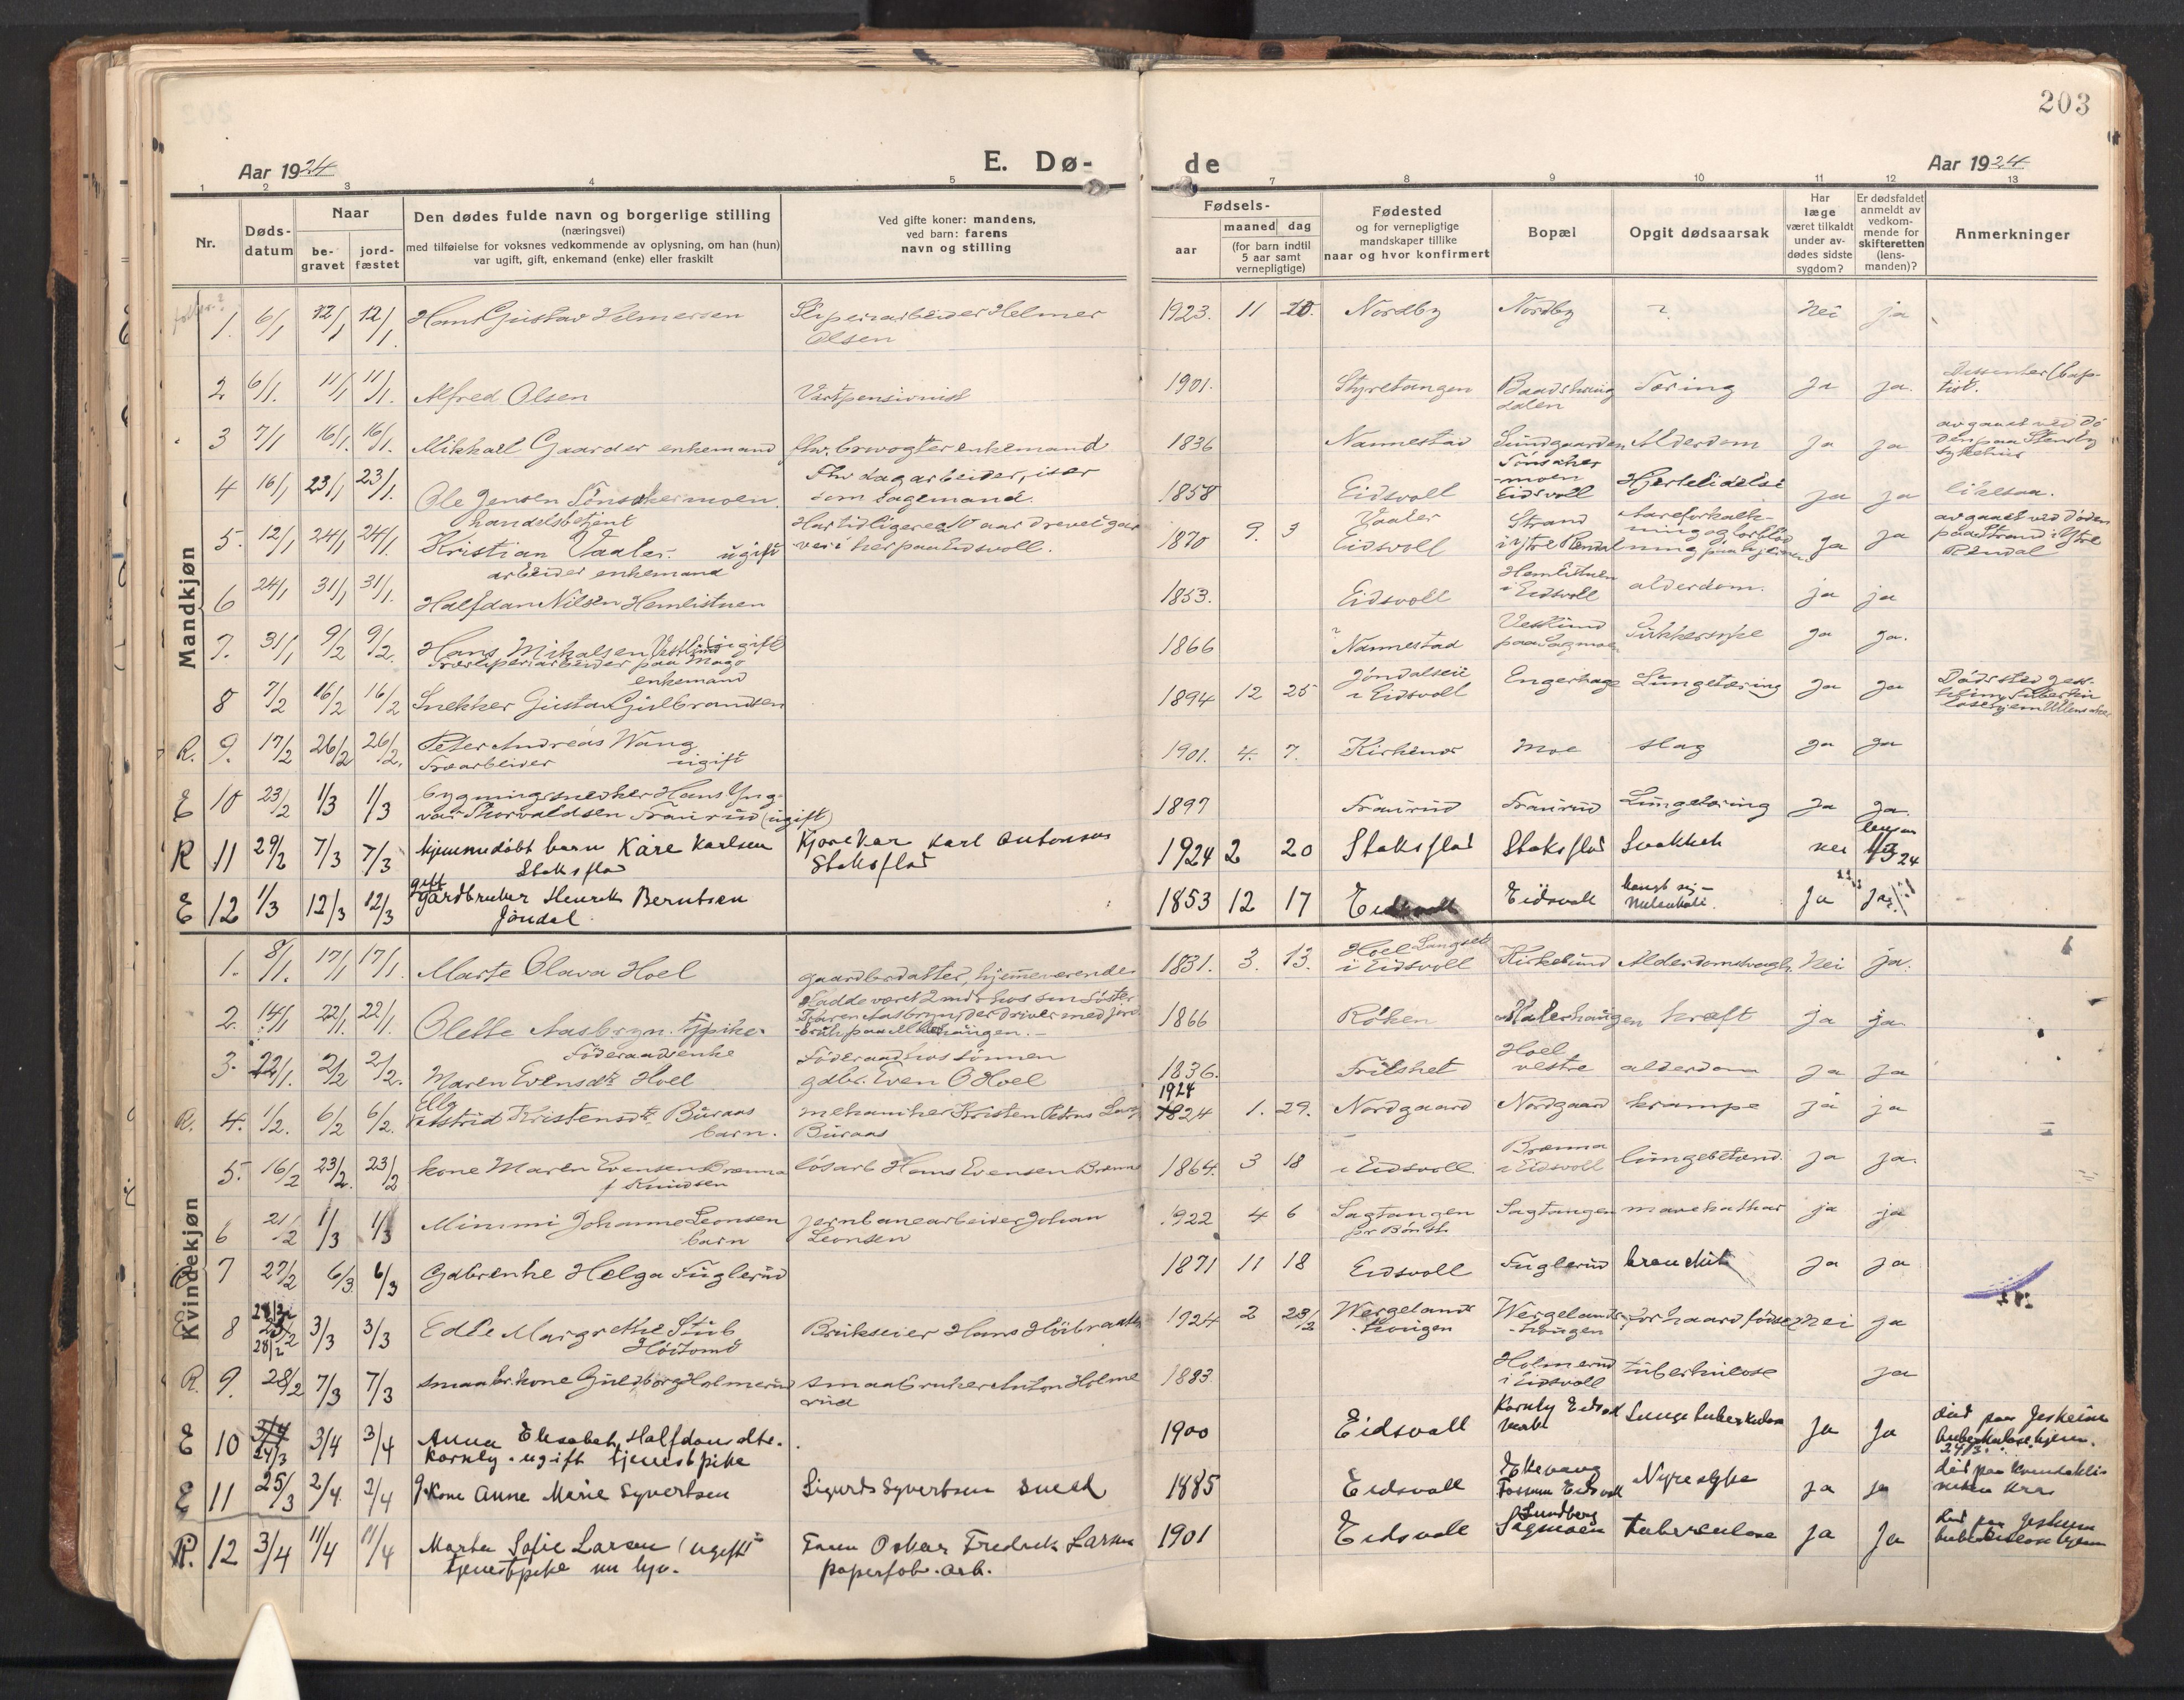 203
Aar 1924
E. Dø-
de
Aar 1924
1 2 3 4 5 7 8 9 10 11 12 13
Nr.
Døds-
datum
Naar
be-
gravet
jord-
fæstet
Den dødes fulde navn og borgerlige stilling
(næringsvei)
med tilføielse for voksnes vedkommende av oplysning, om han (hun)
var ugift, gift, enkemand (enke) eller fraskilt
Ved gifte koner: mandens,
ved barn: farens
navn og stilling
Fødsels-
aar
maaned dag
(for barn indtil
5 aar samt
vernepligtige)
Fødested
og for vernepligtige
mandskaper tillike
naar og hvor konfirmert
Bopæl
Opgit dødsaarsak
Har
læge
været tilkaldt
under av-
dødes sidste
sygdom?
Er dødsfaldet
anmeldt av
vedkom-
mende for
skifteretten
(lens-
manden)?
Anmerkninger
Mandkjøn
1. 6/1 12/1 12/1 Hans Gustav Helmersen
Sliperiarbeider Helmer
Olsen
1923. 11 20. Nordby Nordby ? Nei ja
2 6/1. 11/1 11/1. Alfred Olsen
1901. Styretangen
Tæring Ja ja.
Dissenter (bap-
tist.
3 7/1 16/1. 16/1. Mikhael Gaarder enkemand
enkemand
1836 Nannestad Sundgaarden Alderdom Ja ja
avgaaet ved dø
den paa Stensby
sykehus
4 16/1 23/1 23/1. Ole Jensen Tønsakermoen.
Fhv dagarbeider, især
som sagemand.
1858 Eidsvoll
Tønsaker
-moen
Eidsvoll
Hjertelidelse ja ja likesaa.
5. 12/1 24/1 24/1.
handelsbetjent
Kristian Vaaler. ugift
Har tidligere 10 aar drevet gar
veri her paa Eidsvoll.
1870 9. 3
Vaaler
Eidsvoll
Strand
i Ytre Rendal
Aareforkalk-
ning
Ja ja
avgaaet ved døden
paa Strand i Ytre
Rendal
6 24/1 31/1 31/1.
arbeider enkemand
Halfdan Nilsen Hemlistuen
1853. Eidsvoll
Hemlistuen
i Eidsvoll
alderdom. ja ja
7. 31/1 9/2 9/2. Hans Mikalsen Vestlund ugift
Træsliperiarbeider paa Mago
1866 Nannestad
Vestlund
paa Sagmoen
Sukkersyke Ja ja.
8 7/2 16/2 16/2
enkemand
Snekker Gustav Gulbrandsen
1894 12 25
Jøndalseie
i Eidsvoll
Engerhage Lungetæring Ja Ja
Dødssted Jess-
heim Tuberku
losehjem Ullensaker
R. 9. 17/2 26/2 26/2. Peter Andreas Wang
Træarbeider ugift
1901. 4. 7. Moe slag Ja ja
E 10 23/2 1/3 1/3 bygningssnedker Hans Yng-
var Thorvaldsen Traurud (ugift)
1897 Traurud Traurud Lungetæring Ja ja.
R 11 29/2 7/3 7/3 hjemmedøbt barn Kåre Karlsen
Staksflad
Karl Antonsen
Staksflad
1924 2 20 Staksflad Staksflad Svakhet nei
E 12 1/3 12/3 12/3
gift
gårdbruker Henrik Berntsen
Jøndal.
1853 12 17 Eidsvoll Eidsvoll
hængt sig -
melankoli.
Ja
Kvindekjøn
1. 8/1. 17/1 17/1. Marte Olava Hoel
gaardbrdatter, hjemmeværende
1831. 3. 13.
Hoel Langset
i Eidsvoll
Kirkelund Nei ja.
2. 14/1 22/1. 22/1. Olette Aasbryn. pike.
Hadde været 2 mdr hos sin søster
1866 Røken kræft ja ja
3. 22/1. 2/2 2/2.
Føderaadsenke
Maren Evensdtr Hoel
Føderaad hos sønnen
gdbr. Even O Hoel
1836. Frilset
Hoel
vestre
alderdom ja ja
R. 4. 1/2. 6/2 6/2.
Ella
Astrid Kristensdtr. Buraas
barn.
mekaniker Kristen Petrus
Buraas
1924
1824 1. 29. Nordgaard Nordgaard krampe ja ja
5. 16/2 23/2. 23/2 kone Maren Evensen Brænna
f Knudsen
løsarb Hans Evensen Brænna
1864. 3 18 i Eidsvoll.
Brænna
i Eidsvoll
lungebetænd. ja ja.
6 21/2 1/3 1/3 Mimmi Johanne Leonsen
barn
jernbanearbeider Johan
Leonsen
1922 4 6 Sagtangen
pr Bøn st.
Sagtangen mavekathar ja ja
7 27/2 6/3 6/3 Gdbrenke Helga Fuglerud
1871 11 18 Eidsvoll Fuglerud bronchit Ja ja
E 8 28/2 3/3 3/3 Edle Margrethe Stub
Brukseier Hans Høibraaten
1924 2 28/2
Wergelands
-haugen
Wergelands
-haugen
for haard fødsel Nei ja
R. 9. 28/2 7/3 7/3 smaabr.kone Guldborg Holmerud
smaabruker Anton Holme
rud
1883
Holmerud
i Eidsvoll
tuberkulose ja
E 10 24/3 3/4 3/4 Anna Elisabeth Halfdansdtr.
Kornby. ugift tjenestpike
1900 Eidsvoll
Kornby Eidsvoll
verk
Lungetuberkulose Ja Ja
død paa Jesheim
tuberkulosehjem.
24/3.
E 11 25/3 2/4 2/4 g. Kone Anne Marie Syvertsen
Sigurd Syvertsen smed
1885 Eidsvoll
Fossum Eidsvoll
Nyresyke ja ja
R. 12 3/4 11/4 11/4 Marta Sofie Larsen (ugift
tjenestpike
Faren Oskar Fredrik Larsen
papirfab. arb.
1901 Eidsvoll
Lundberg
Sagmoen
tuberculose ja Ja
død paa Jesheim
tuberkulosehjem